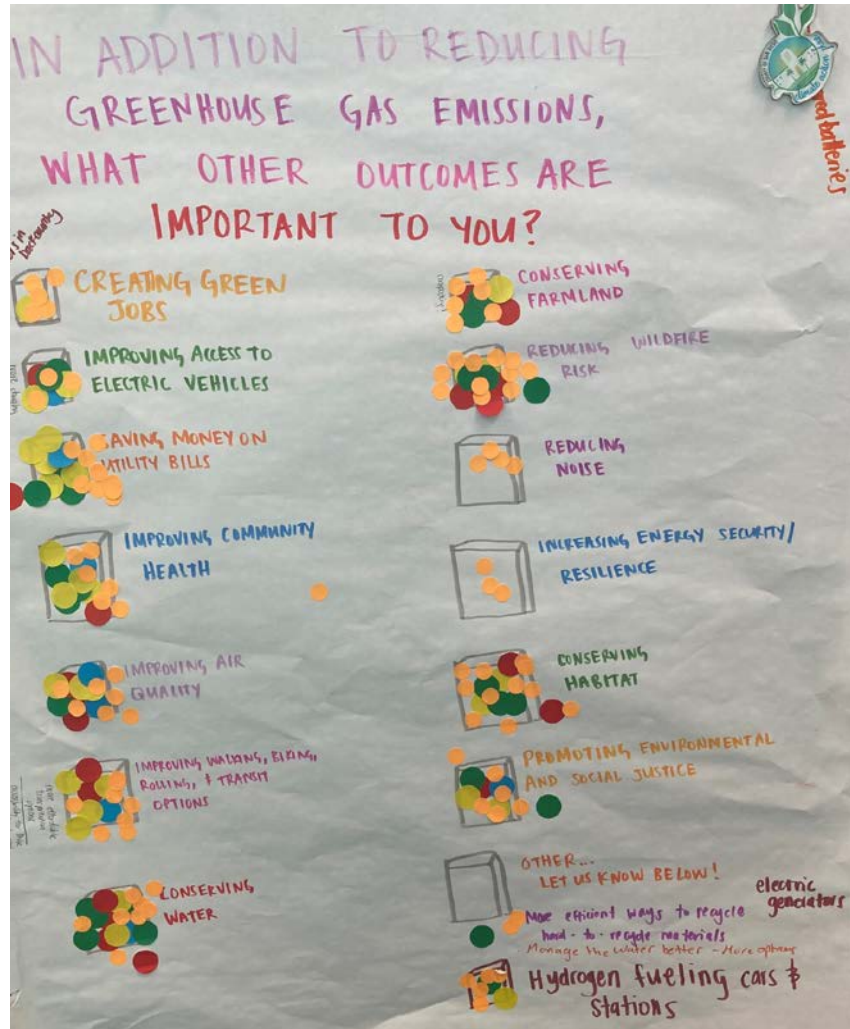 IN ADDITION TO REDUCING
GREENHOUSE GAS EMISSIONS,
WHAT OTHER OUTCOMES ARE
IMPORTANT TO YOU?
batteries
CREATING GREEN
JOBS
IMPROVING ACCESS TO
ELECTRIC VEHICLES
SAVING MONEY ON
UTILITY BILLS
IMPROVING COMMUNITY
HEALTH
IMPROVING AIR
QUALITY
IMPROVING WALKING, BIKING,
ROLLING, & TRANSIT
OPTIONS
CONSERVING
WATER
CONSERVING
FARMLAND
REDUCING WILDFIRE
RISK
REDUCING
NOISE
INCREASING ENERGY SECURITY/
RESILIENCE
CONSERVING
HABITAT
PROMOTING ENVIRONMENTAL
AND SOCIAL JUSTICE
OTHER...
LET US KNOW BELOW!
electric
generators
More efficient ways to recycle
hard-to-recycle materials
Manage the water better - More options
Hydrogen fueling cars &
Stations